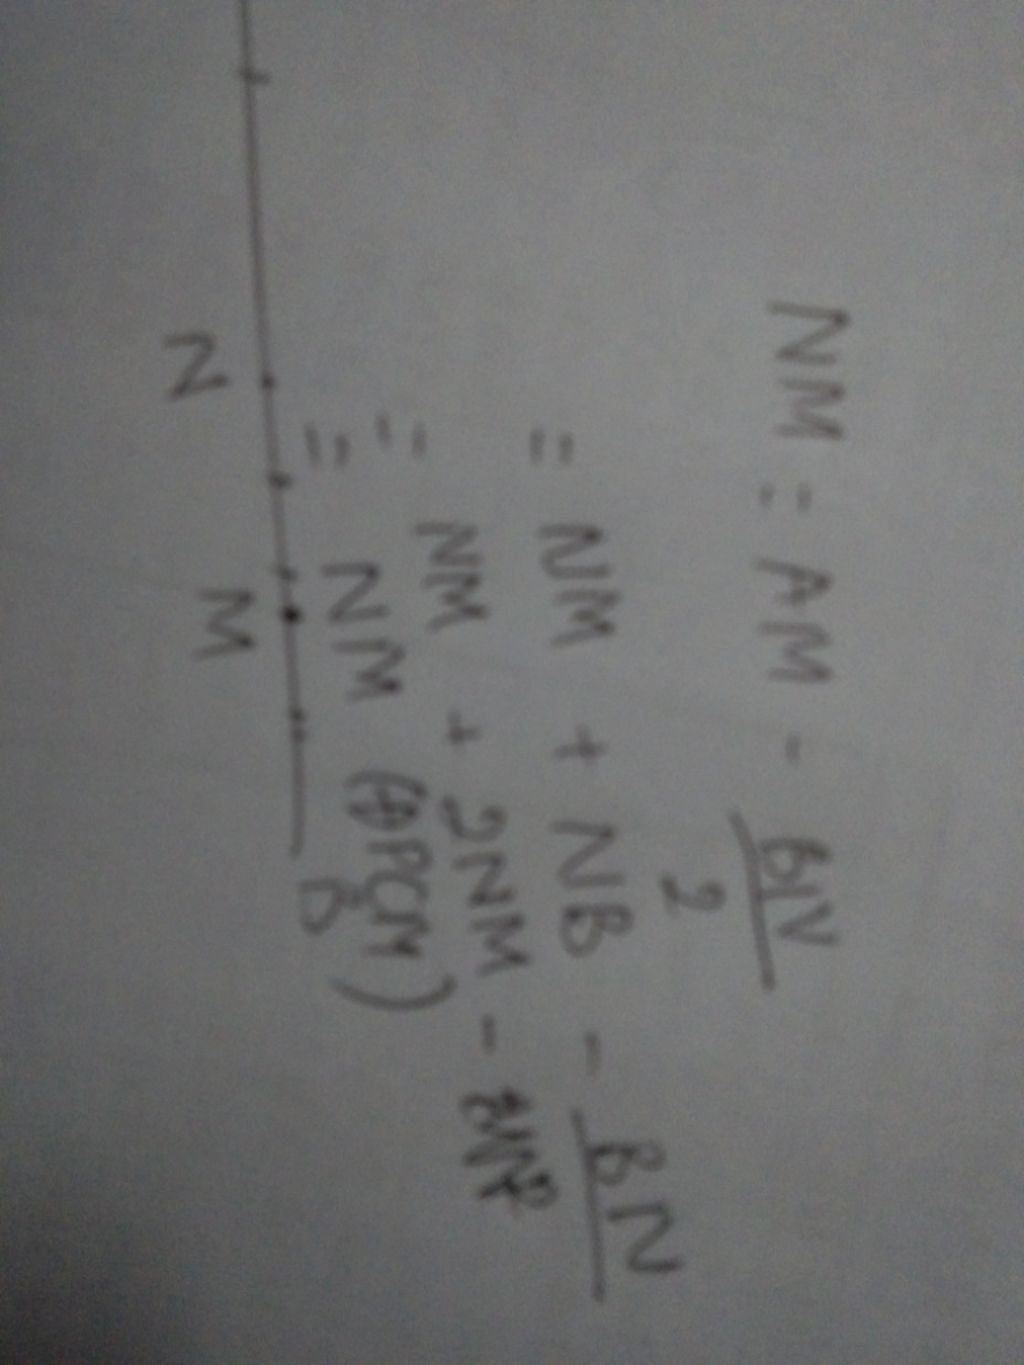 NM = AM - BN
2
= NM + NB - BN
= NM + 2NM -
= NM (ĐPCM)
B
N M